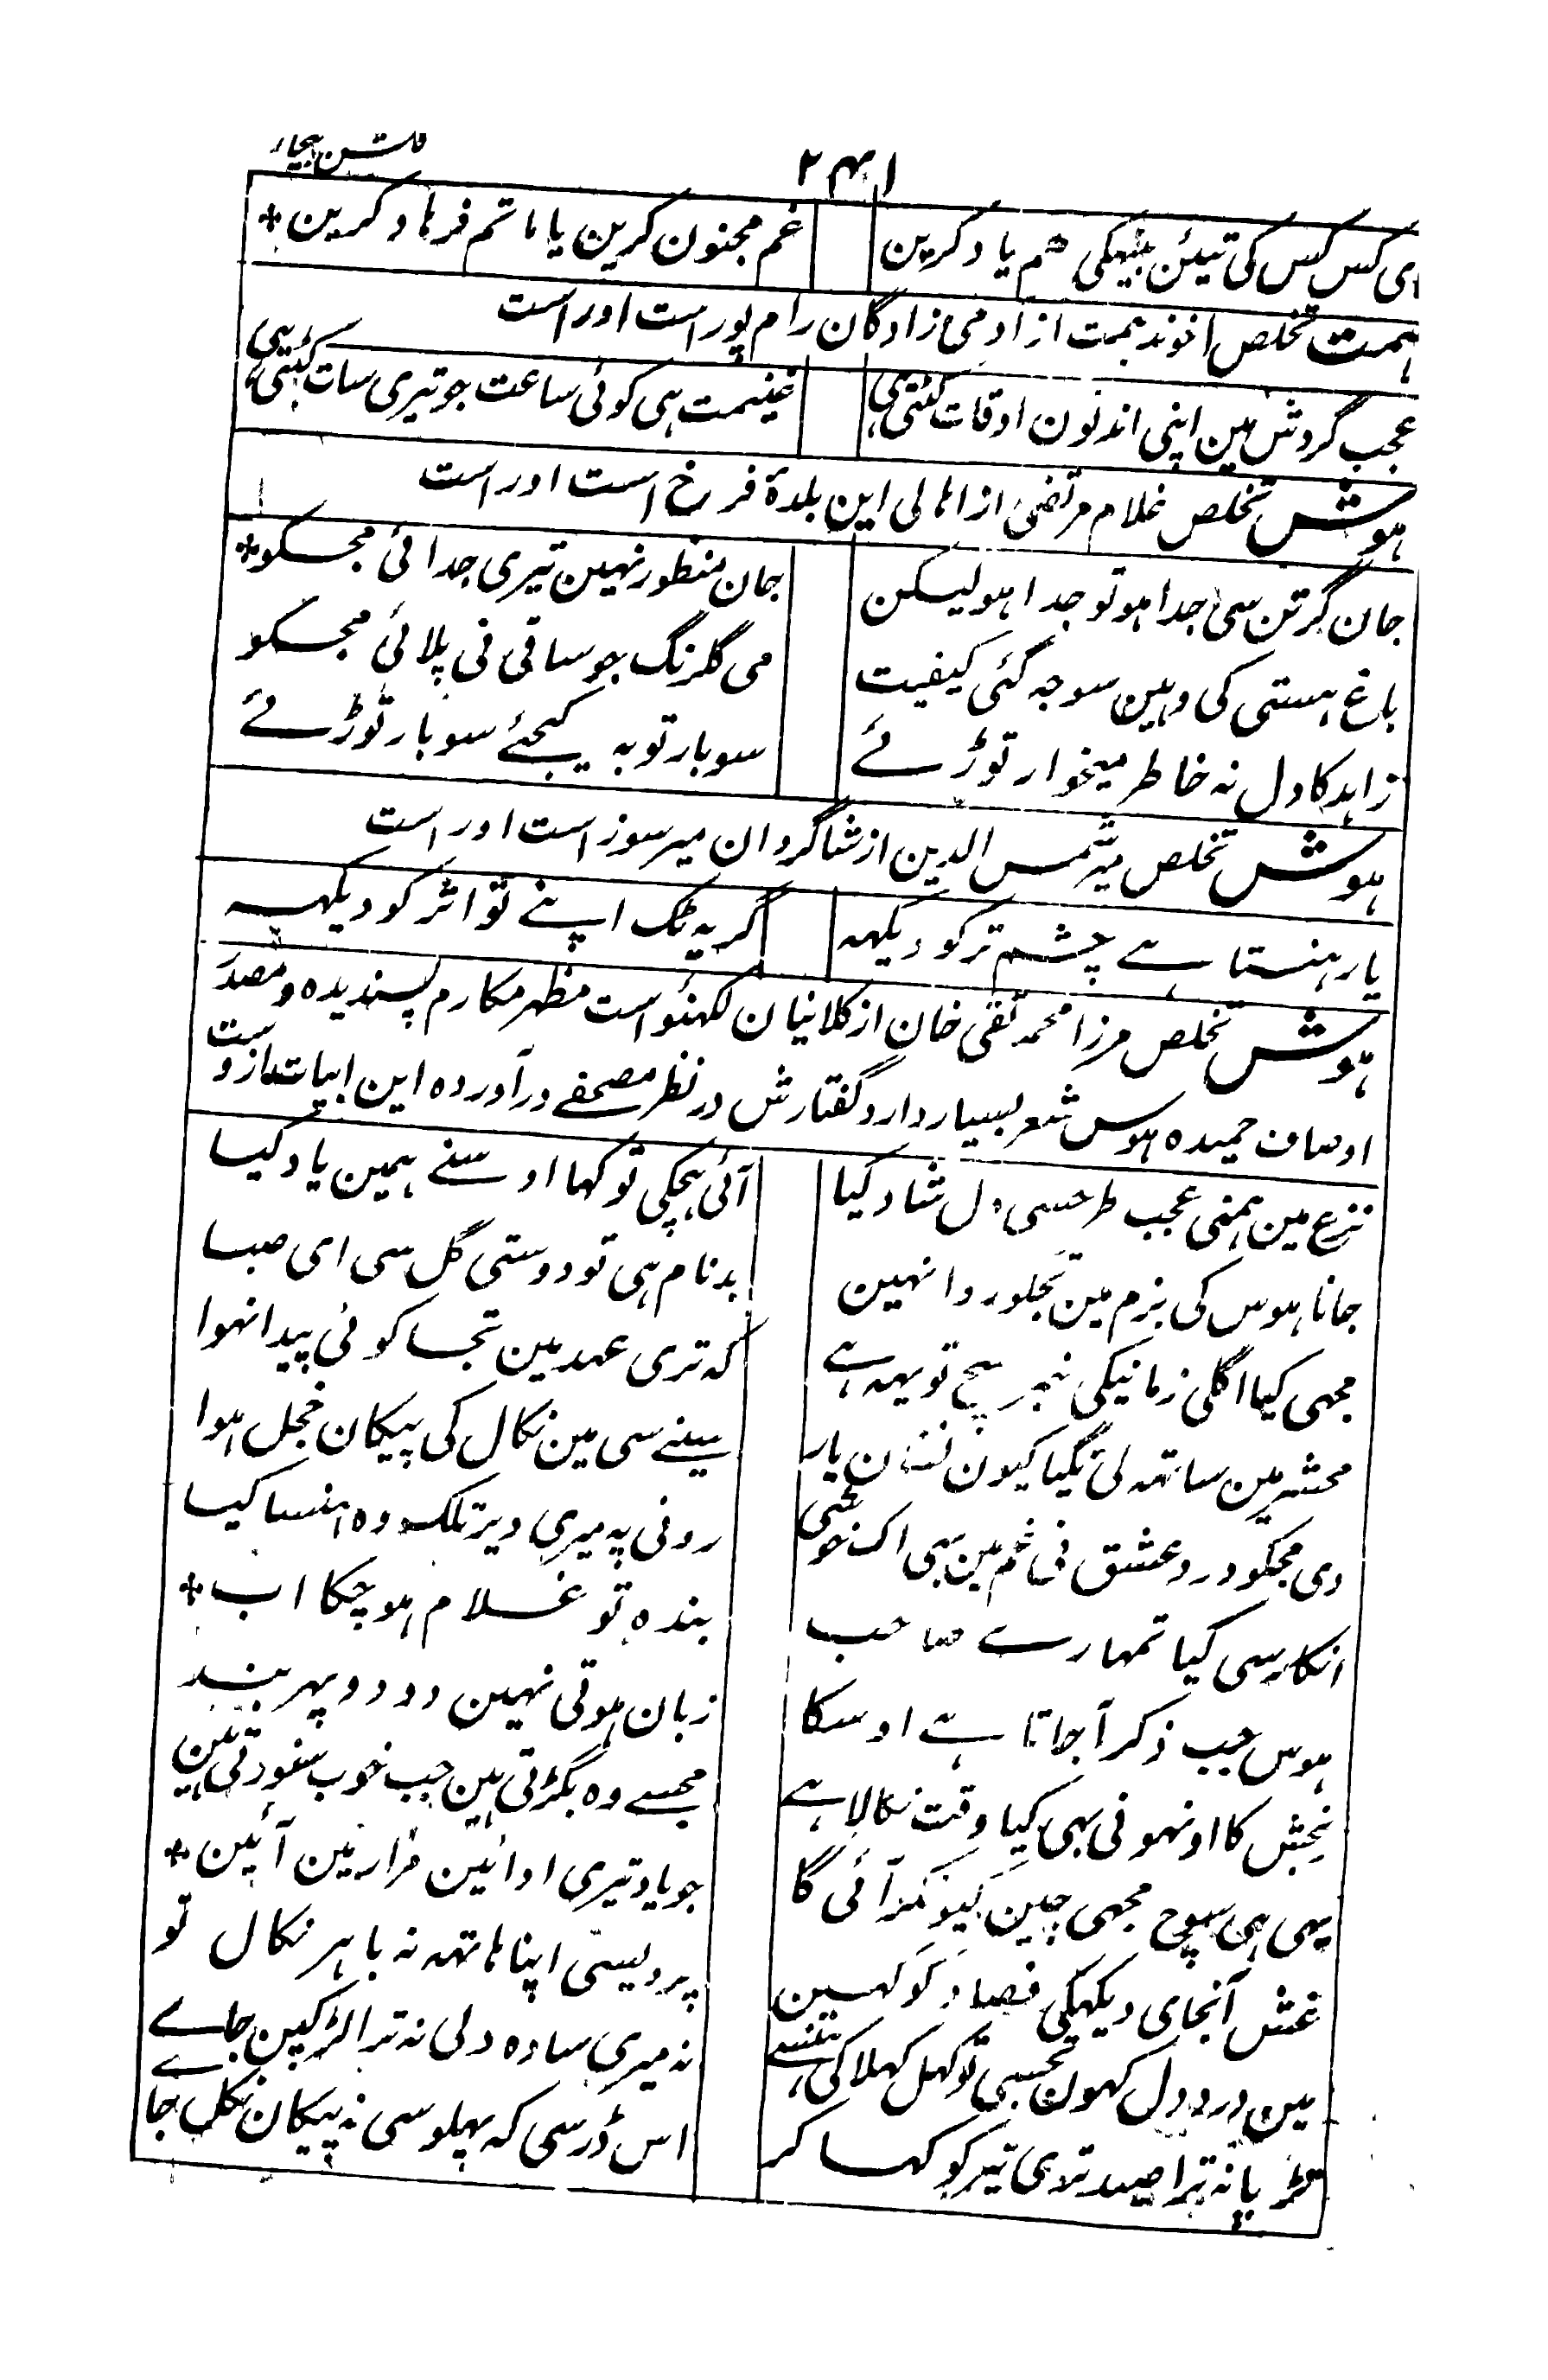 گلشن بیخار
۲۴۱
ای کس کس کی تیئن بیٹہکی ہم یاد کرین
غم مجنون کرین یا ماتم فرہاد کرین *
ہمت تخلص اخوند ہمت از آدمی زادگان رام پور است اوراست
عجب گردش مین اپنی اندنون اوقات کٹتی ہی
غنیمت ہی کوئی ساعت جو تیری سات کٹتی ہی
ہوش تخلص غلام مرتضی از اہالی این بلدۂ فرخ است اوراست
جان گر تن سی جدا ہو تو جدا ہو لیکن
جان منظور نہین تیری جدائی مجسکو *
باغ ہستی کی وہین سوجہ گئی کیفیت
می گلرنگ جو ساقی نی پلائی مجسکو
زاہد کا دل نہ خاطر میخوار توڑئے
سو بار توبہ کیجئے سو بار توڑئے
ہوش تخلص میر شمس الدین از شاگردان میر سوز است اوراست
یار ہنستا ہے چشم تر کو دیکہہ
گریہ ٹک اپنے تو اثر کو دیکہہ
ہوش تخلص مرزا محمد تقی خان از کلانیان لکہنؤ است مظہر مکارم پسندیدہ و مصدر
اوصاف حمیدہ ہوس شعر بسیار دارد گفتارش در نظر مصحفے در آوردہ این ابیات ازوست
نزع مین ہمنی عجب طرحسی دل شاد کیا
آئی ہچکی تو کہا اوسنے ہمین یاد کیا
جانا ہوس کی بزم مین تجکو روا نہین
بدنام ہی تو دوستی گل سی ای صبا
مجہی کیا اگلی زمانیکی خبر سچ تو یہہ ہے
کہ تری عہد مین تجسا کوئی پیدا نہوا
محشر مین ساتہہ لی نگیا کیون نشان یار
سینے سی مین نکال کی پیکان خجل ہوا
دی مجکو درد عشق نی غم مین بہی اک خوشی
رونی پہ میری دیر تلک وہ ہنسا کیا
انکار سی کیا تمہارے صاحب
بندہ تو غلام ہو چکا اب *
ہوس جب ذکر آ جاتا ہے اوسکا
زبان ہوتی نہین دو دو پہر بند
رنجش کا اونہو نی بہی کیا وقت نکالا ہے
مجسے وہ بگڑتی ہین جب خوب سنورتی ہین
یہی ہی سوچ مجہی چین کیونکر آئی گا
جو یاد تیری ادائین مزار مین آئین *
غش آنجای دیکہکی فصاد کو کہین
پردیسی اپنا ہاتہہ نہ باہر نکال تو
مین درد دل کہون تجسی تو کہل کہلا کی ہنسے
نہ میری سادہ دلی نہ ترا لڑکپن جاے
تڑپا نہ ترا صید تری تیر کو کہا کر
اس ڈر سی کہ پہلو سی نہ پیکان نکل جاے